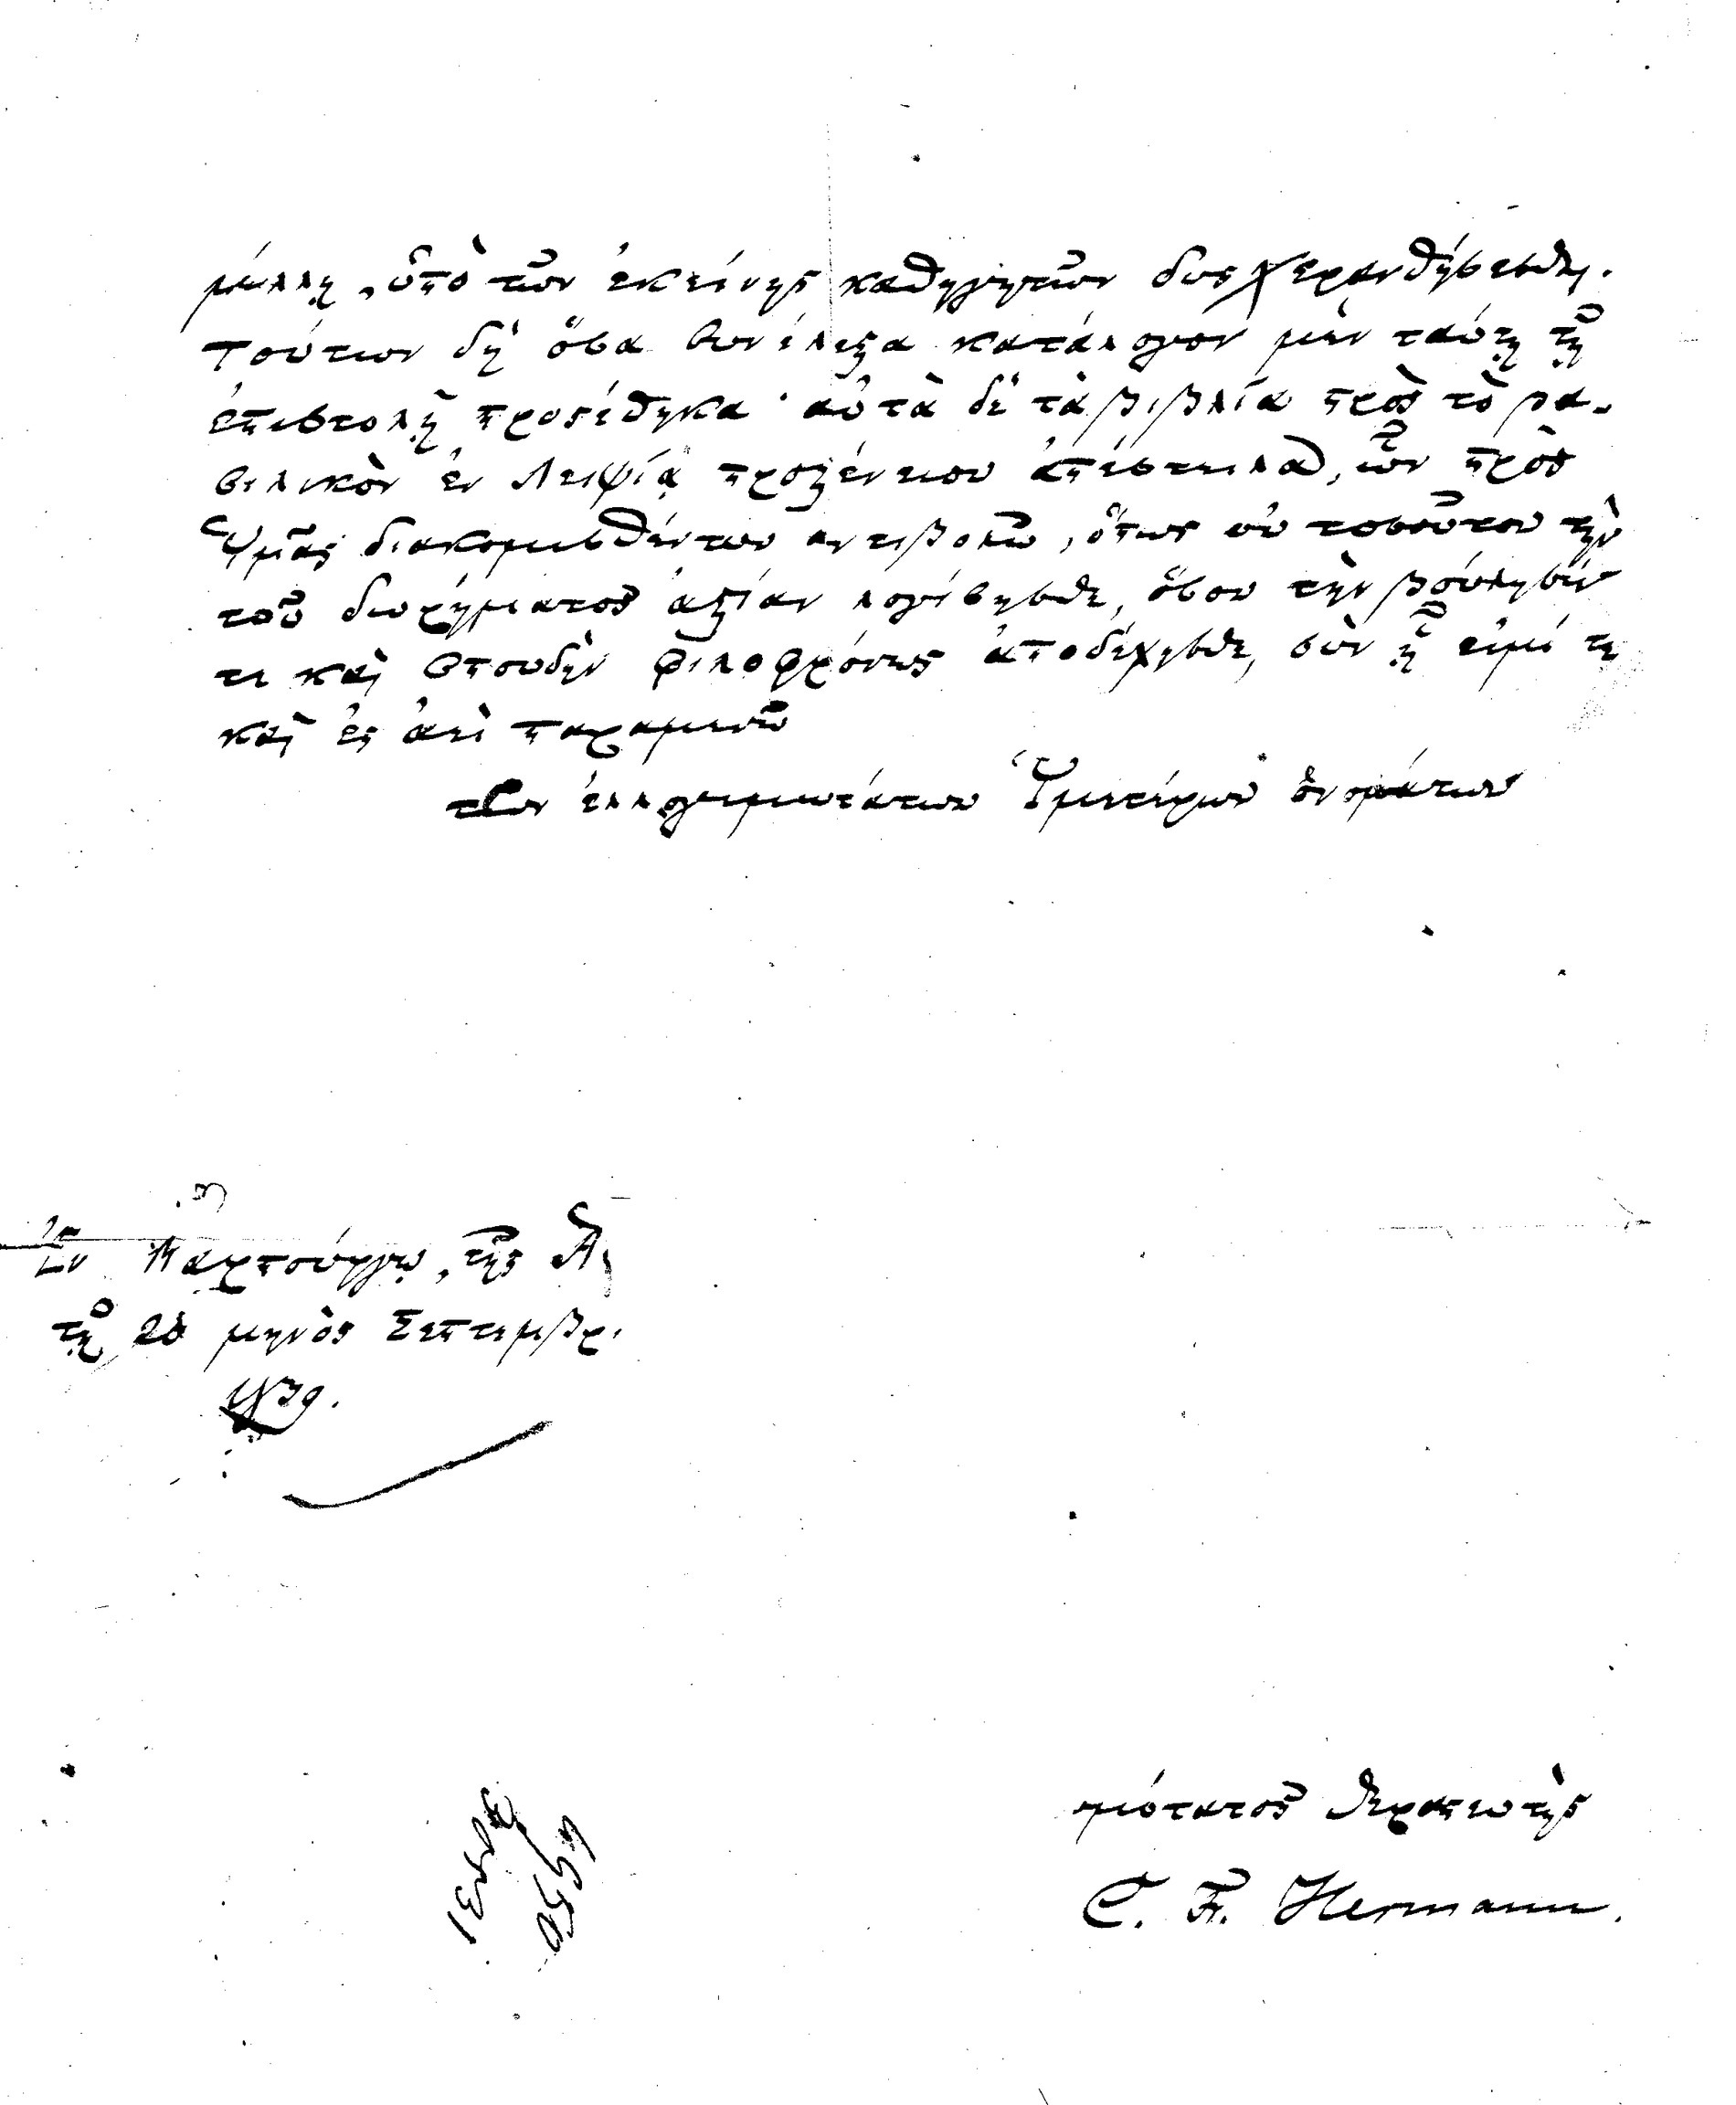 μέλλῃ, ὑπὸ τῶν ἐκείνης καθηγητῶν δυσχερανθήσεσθαι.
Τούτων δὴ ὅσα συνέλεξα κατάλογον μὲν ταύτῃ τῇ
ἐπιστολῇ προσέθηκα· αὐτὰ δὲ τὰ βιβλία πρὸς τὸ βα-
σιλικὸν ἐν Λειψίᾳ προξένειον ἀπέστειλα, ὧν πρὸς
Ὑμᾶς διακομισθέντων ἀντιβολῶ, ὅπως οὐ τοσοῦτον τὴν
τοῦ δωρήματος ἀξίαν λογίσησθε, ὅσον τὴν βούλησίν
τε καὶ σπουδὴν φιλοφρόνως ἀποδέχησθε, σὺν ᾗ εἰμί τε
καὶ ἐς ἀεὶ παραμενῶ
τῶν ἐλλογιμωτάτων Ὑμετέρων ὀνομάτων
Ἐν Μαρπούργῳ τῆς
τῇ 20 μηνὸς Σεπτεμβρ.
1839.
θεραπευτὴς
C. Fr. Hermann.